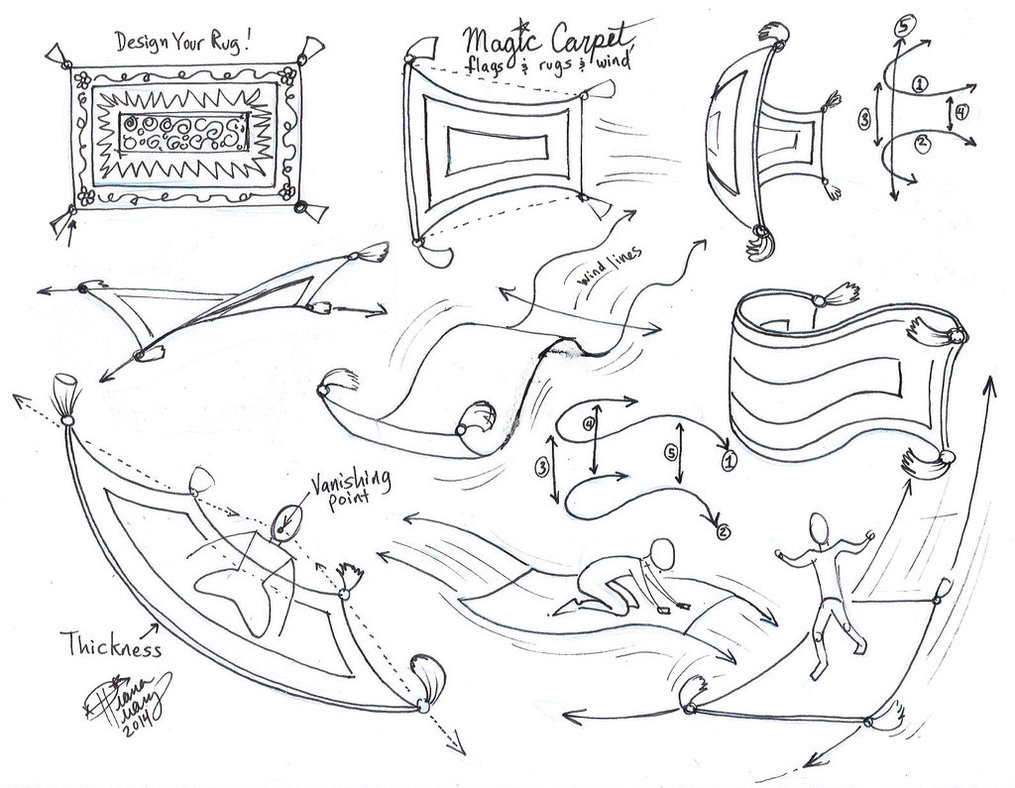 Design Your Rug!
Magic Carpet,
flags & rugs & wind
5
1
3
4
2
wind lines
4
5
3
1
2
Vanishing
point
Thickness
Diana
Huang
2014